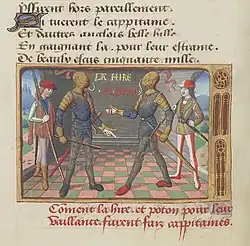 yssirent hors pareillement.
Si tuerent le cappitaine
Et dautres anglois belle bille
En gaignant la, pour leur estraine
De beaulx escus cinquante mille.
LA HIRE
POTON
Coment la hire, et poton pour leur
vaillance furent faiz cappitaines.